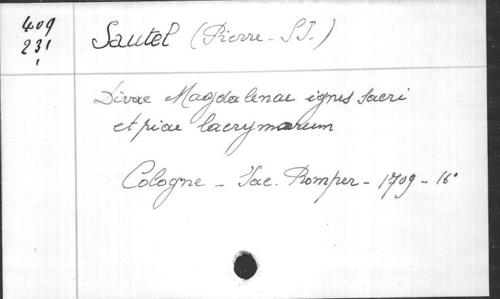 409
231
1
Sautel (Pierre - S.J.)
Divae Magdalenae ignes sacri
et piae lacrymarum
Cologne - Jac. Romper - 1709 - 16°